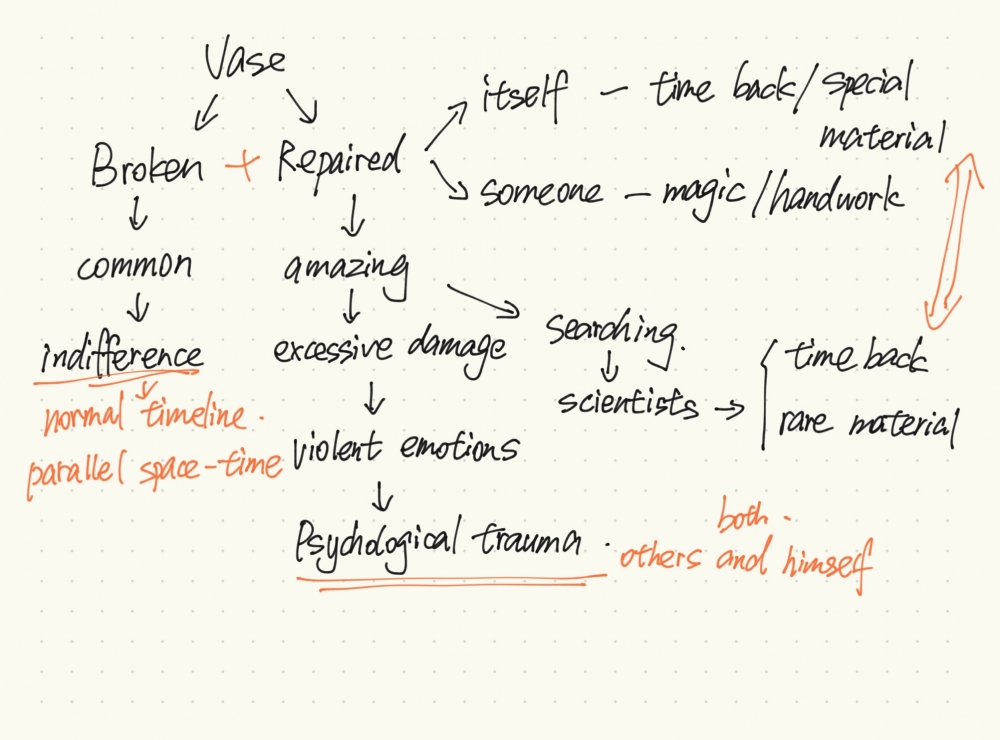 Vase
itself – time back/special
material
Broken + Repaired
someone – magic/handwork
common
amazing
indifference
excessive damage
searching.
scientists
time back
rare material
normal timeline.
parallel space-time
violent emotions
Psychological trauma.
both.
others and himself